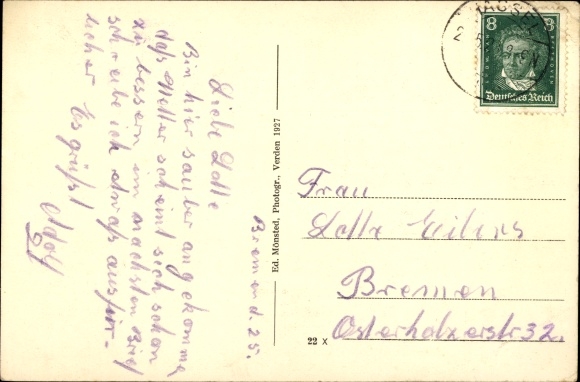 Bremen d. 25.
Liebe Lotte
Bin hier sauber angekomme
daß Wetter scheint sich schon
zu bessern im nächsten Brief
schreibe ich etwaß ausfür-
licher Es grüßt
Adolf
Ed. Mönsted, Photogr., Verden 1927
22 x
8 8
Deutsches Reich
Frau
Lotte Eilers
Bremen
Osterholzerstr 32.